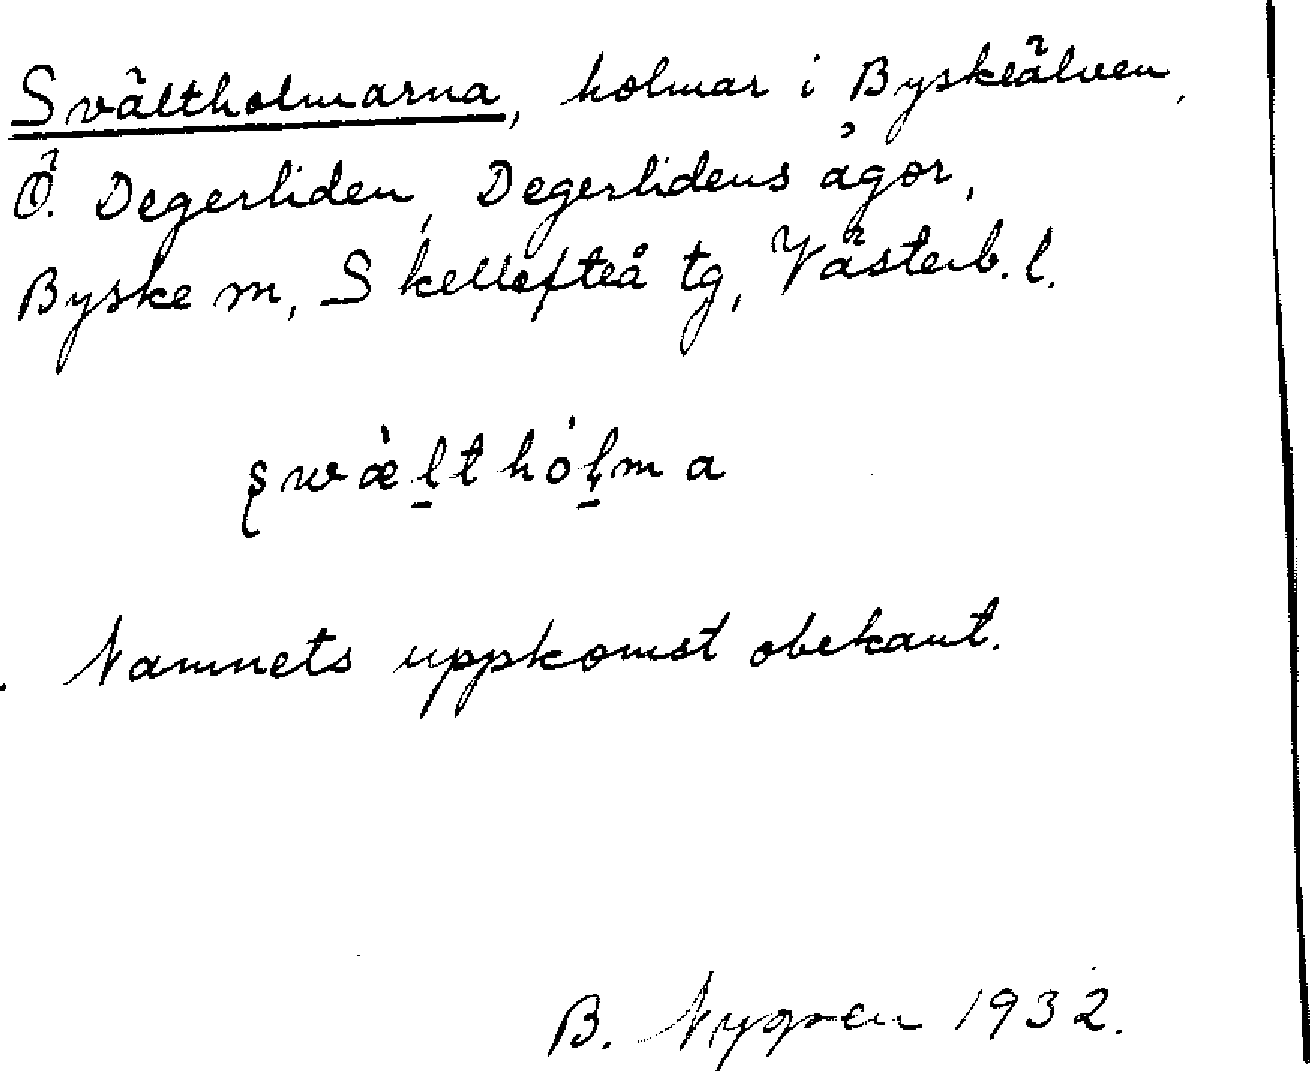 Svältholmarna, holmar i Byskeälven,
Ö. Degerliden, Degerlidens ägor,
Byske sn, Skellefteå tg, Västerb. l.
swæ̀lthól̥ma
Namnets uppkomst obekant.
B. Nygren 1932.